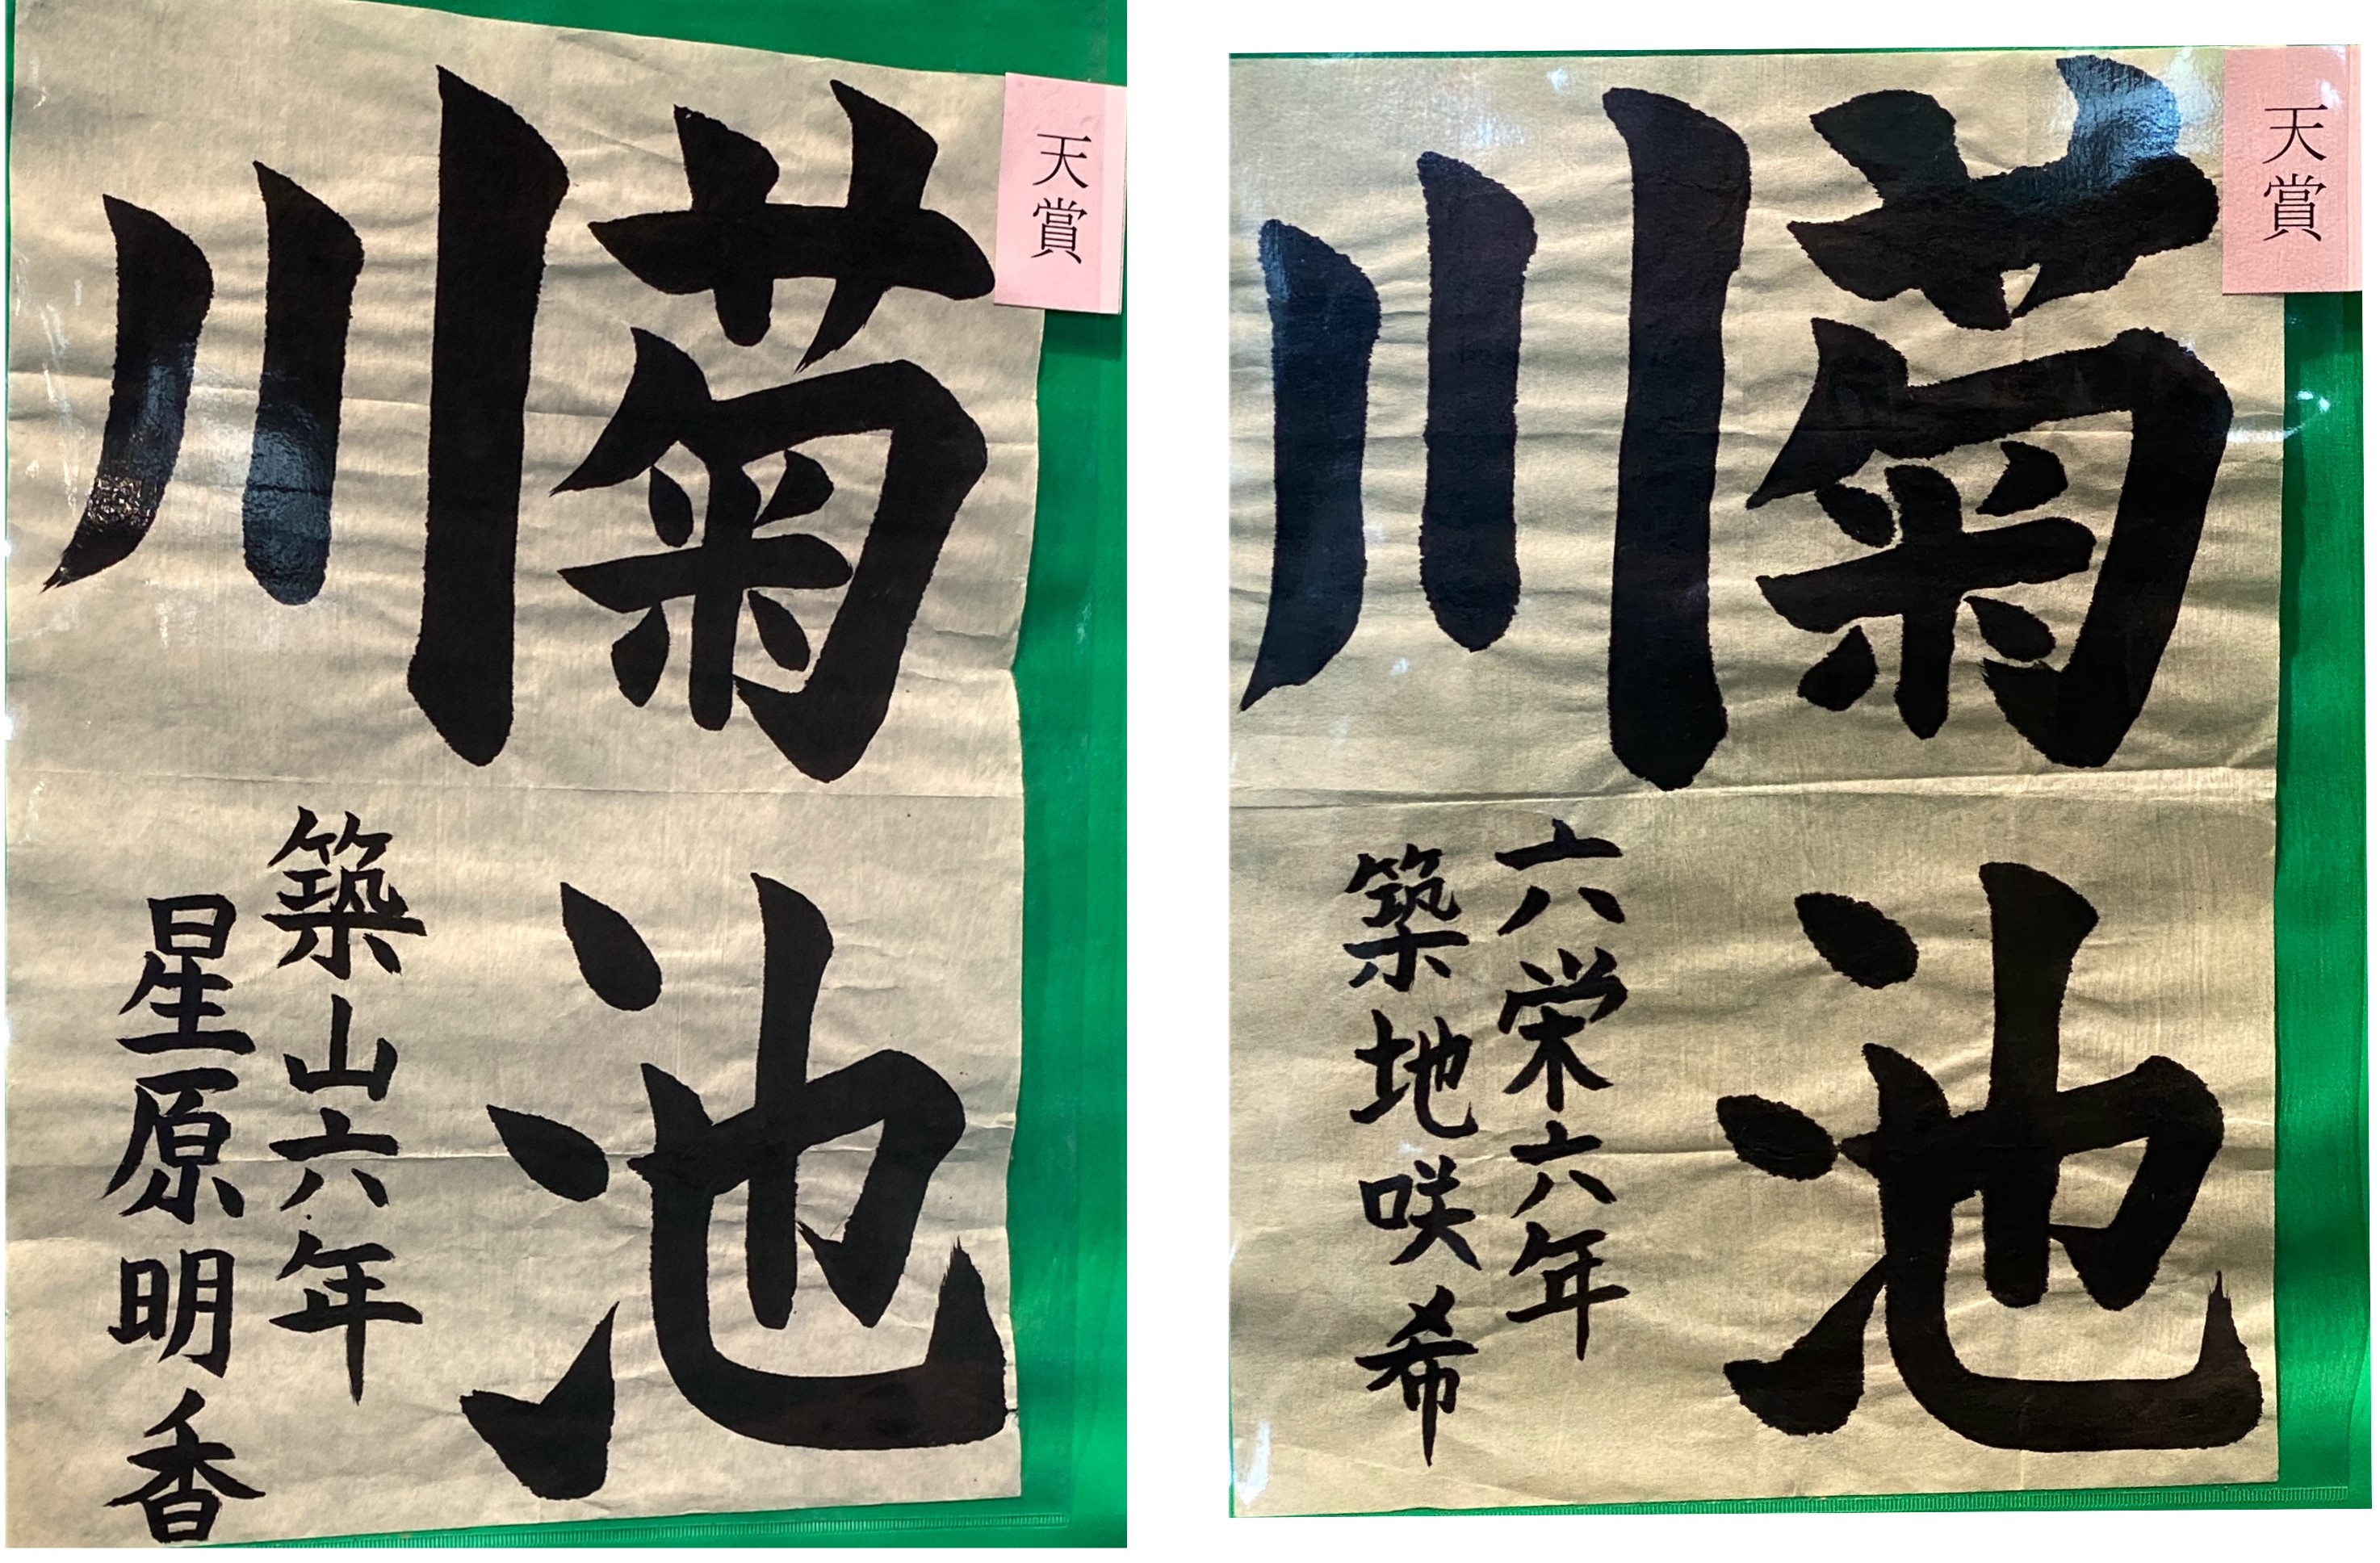 天賞
菊池
川
築山六年
星原明香
天賞
菊池
川
六栄六年
築地咲希